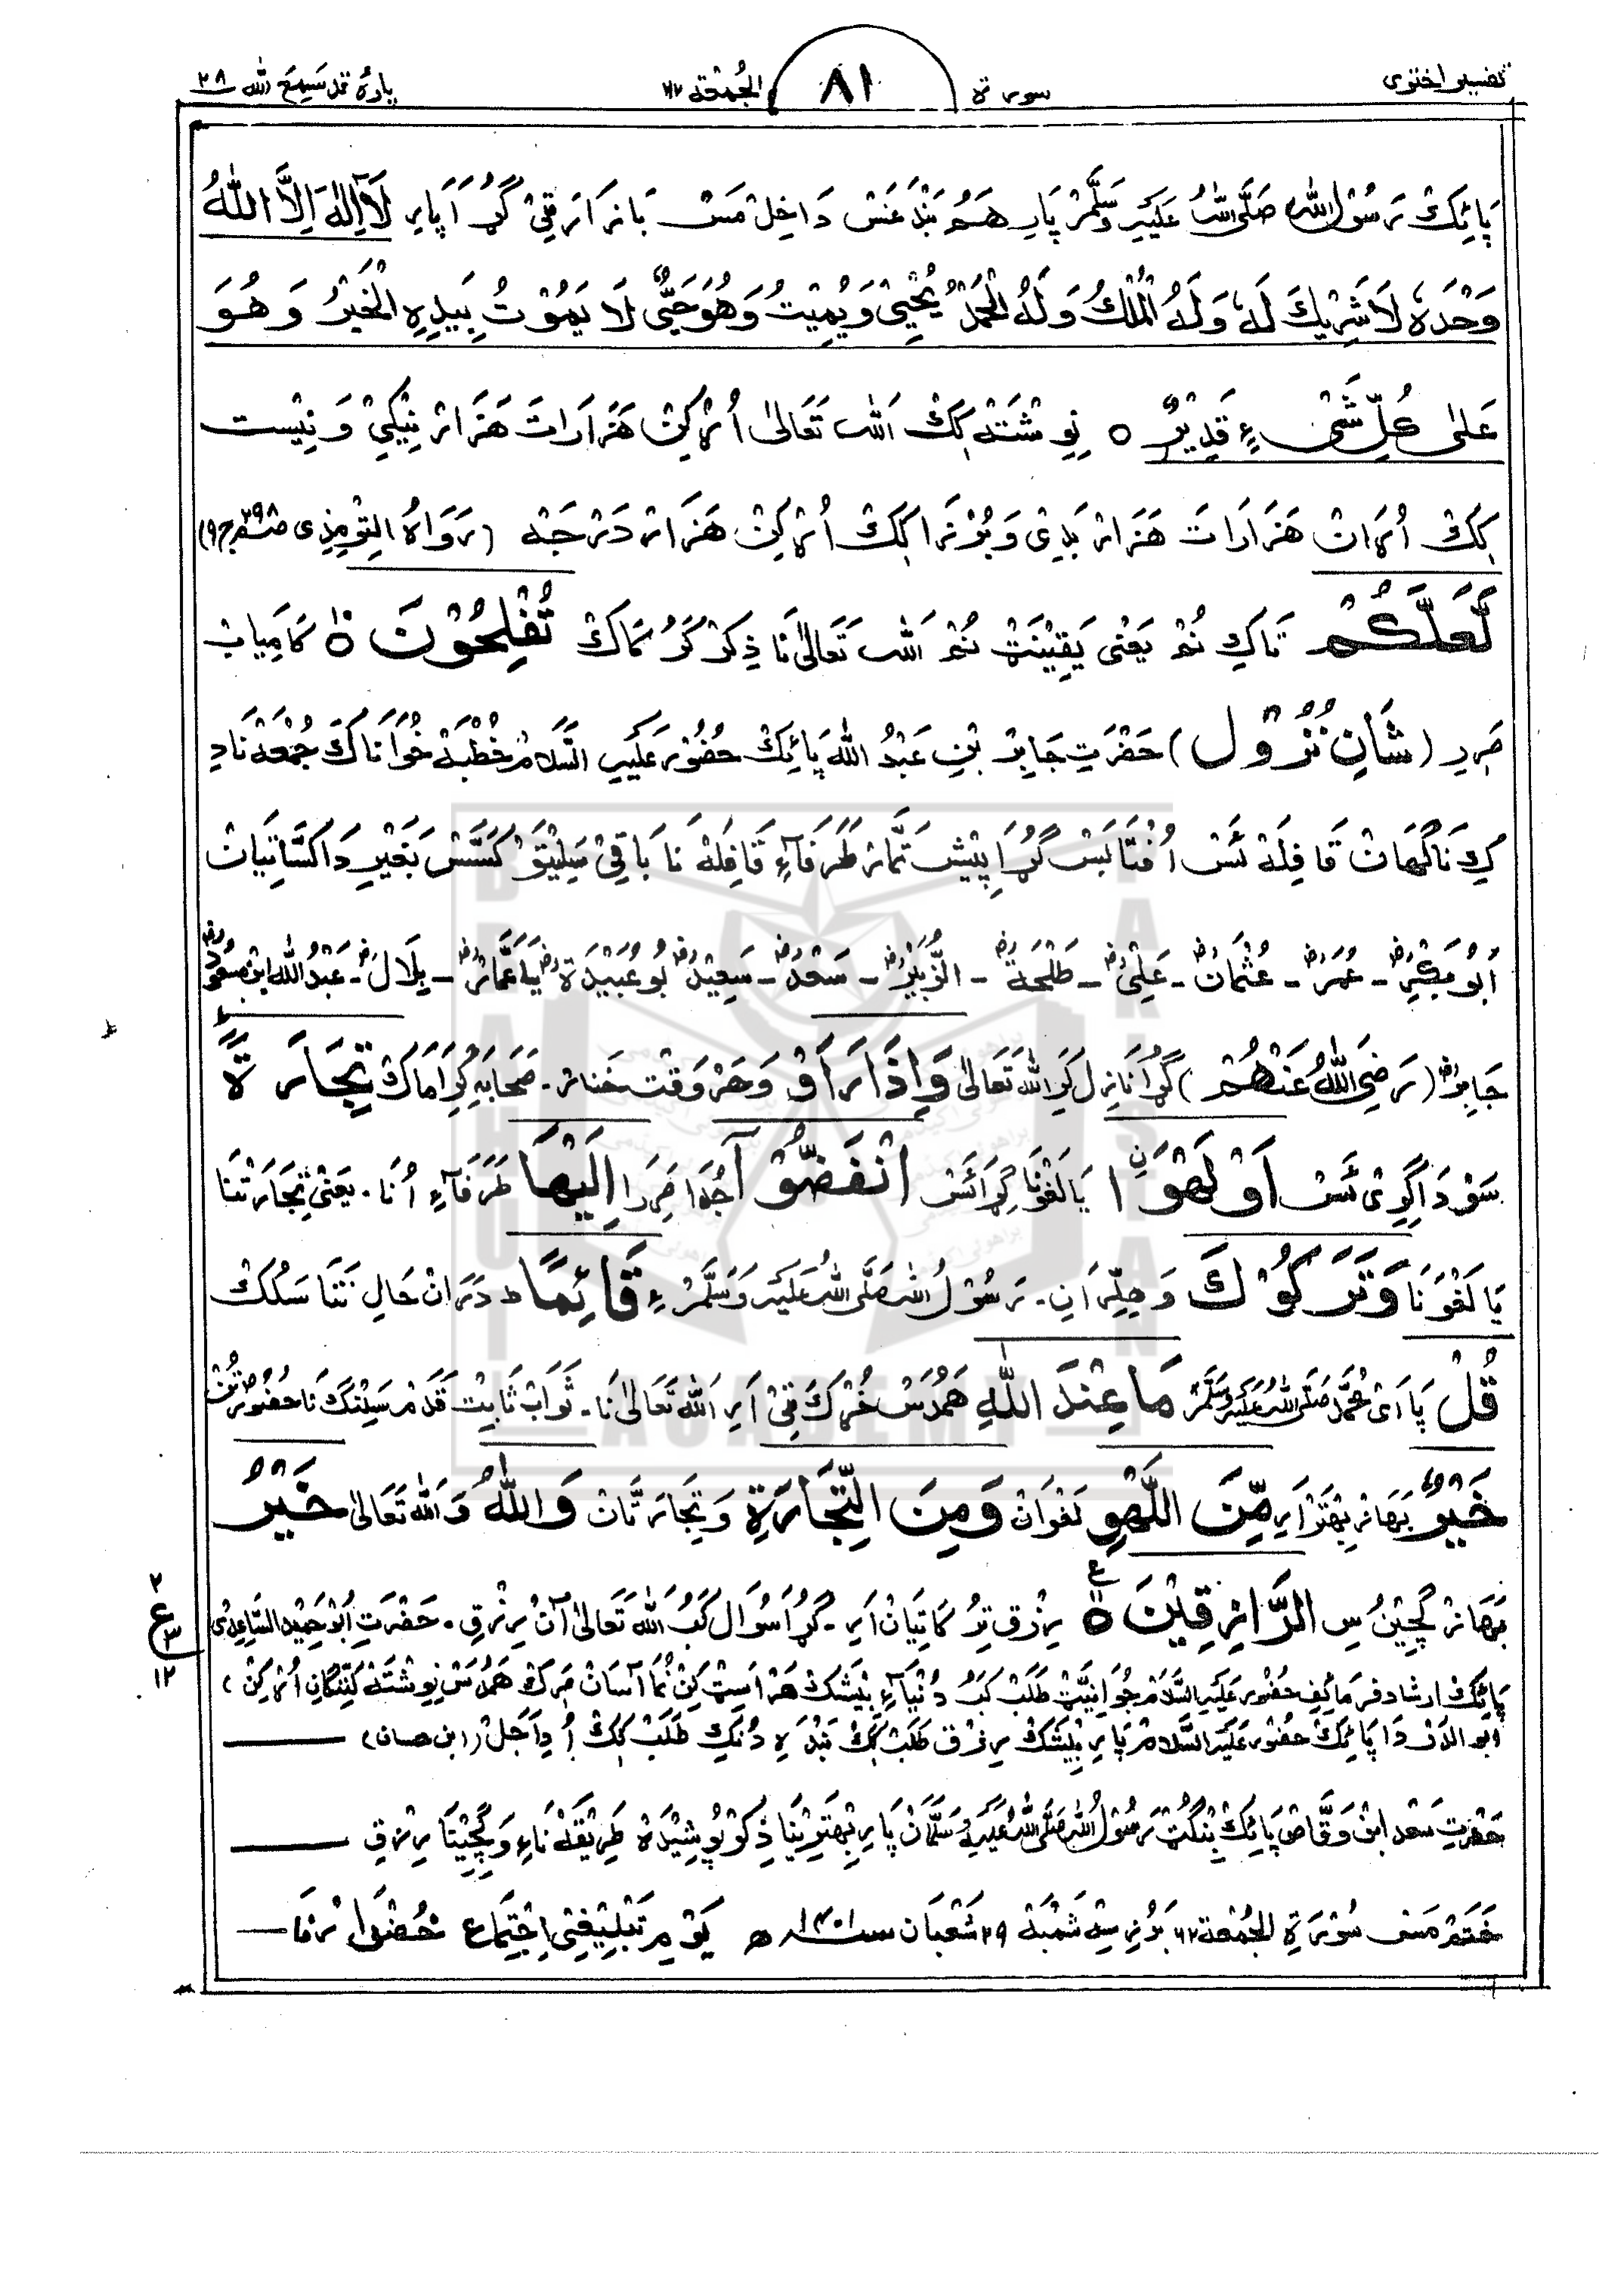 تفسیر اختری سورۃ ٨١ الجُمُعَة ٦٢ پارۂ قد سَمِعَ اللہ ٢٨
پَائِک رَسُوْلُ اللہِ صَلَّی اللہُ عَلَیْہِ وَسَلَّمْ پَارِ ہَمُ بَنْدَغَس دَاخِل مَس بَازَار اَٹِی گُڑا پَارِ لَآ اِلٰہَ اِلَّا اللہُ
وَحْدَہٗ لَا شَرِیْكَ لَہٗ وَلَہُ الْمُلْكُ وَلَہُ الْحَمْدُ یُحْیِیْ وَیُمِیْتُ وَھُوَ حَیٌّ لَا یَمُوْتُ بِیَدِہِ الْخَیْرُ وَھُوَ
عَلٰی کُلِّ شَیْءٍ قَدِیْرٌ ہ نِوِشْتَہ کِک اَللہ تَعَالٰی اُڑکِن ہَزَارَاتَ ہَزَار نِیْکِیْ وَنِیْست
کِک اُڑَان ہَزَارَات ہَزَار بَدِی وَبُرْزَا کِک اُڑکِن ہَزَار دَرْجَہ (رَوَاہُ التِّرْمِذِی
لَعَلَّكُمْ تَاکِ نُم یَعْنِی یَقِیْنَٹ نُم اَللہ تَعَالٰی نَا ذِکْر کَرُ کَاک تُفْلِحُوْنَ ہ کَامِیَاب
مَرِر (شَانِ نُزُوْل) حَضْرَتِ جَابِر بْنِ عَبْدُ اللہ پَائِک حُضُوْر عَلَیْہِ السَّلَام خُطْبَہ خُوَانَاک جُمْعَہ نَادِ
کِ نَاگہَان قَافِلَہ ئَس اُفْتَا بَس گُڑا پِیْش تَمَّار طَرَفَآءِ قَافِلَہ نَا بَاقِیْ سَلِیْپَو کَسَّس بَغَیْرِ دَا کَسَّاتِیَان
اَبُوبَکْر۔ عُمَر۔ عُثْمَان۔ عَلِی۔ طَلْحَۃ۔ الزُّبَیْر۔ سَعْد۔ سَعِیْد بُوعُبَیْدَۃ یَا عَمَّار۔ بِلَال۔ عَبْدُ اللہ ابْن مسعُود
جَابِر (رَضِیَ اللہُ عَنْهُمْ) گُڑا نَازِل کَرِ اللہ تَعَالٰی وَاِذَا رَاَوْ وَھَر وَقْت خَنَار۔ صَحَابَہِ کِرَامَاک تِجَارَةً
سَوْدَاگِرِی ئَس اَوْ لَهْوَا یَا لَغْوَنَا کِرَائَس انْفَضُّوْٓا جُدَا مَرِرَا اِلَیْهَا طَرَفَآءِ اُنَا۔ یَعْنِی تِجَارَتْنَا
یَا لَغْوَنَا وَتَرَكُوْكَ وَھِلِّرَا نِ۔ رَسُوْلُ اللہ صَلَّی اللہُ عَلَیْہِ وَسَلَّمْ ءِ قَآئِمًا ط دَرَان حَالِ نَنَا سَلُک
قُلْ پَا اَی مُحَمَّد صَلَّی اللہُ عَلَیْہِ وَسَلَّمْ مَا عِنْدَ اللّٰہِ ہَمُدَس خُڑک ٹِیْ اَرِ اَللہ تَعَالٰی نَا۔ ثَوَاب ثَابِت قَدَم سَلِنْگ نَا حُضُور
خَیْرٌ بَھَاز بِہْتَر اَرِ مِّنَ اللَّهْوِ لَغْوَان وَمِنَ التِّجَارَةِ وَتِجَارَتَان وَاللّٰہُ وَاَللہ تَعَالٰی خَیْرُ
بَھَاز کَچِیْنُ سِ الرّٰزِقِیْنَ ہ رِزْق تِرُ کَاتِیَان اَرِ۔ گُڑا سُوَال کَبُ اللہ تَعَالٰی آن رِزْقِ۔ حَضْرَتِ اَبُوْحَمِیْد السَّاعِدِی
پَائِک ارشاد فرمَائِف حُضُور عَلَیْہِ السَّلَام جُوَانِیَّت طَلَب کَبُ دُنْیَآءِ بِیْشَک ہَر اَسِٹ کِن نُمَا آسَان مَرِک ہَمُدَس نِوِشْتَہ اُڑکِن،
ابو الدَّ دَا پَائِک حُضُور عَلَیْہِ السَّلَام پَارِ بِیْشَک رِزْق طَلَب کِک بَنْدَہ ءِ دُنکِ طَلَب کِک اُدِ اَجَل (ابن حسان)
حَضْرَتِ سَعْد ابْنِ وَقَّاص پَائِک بِنْگُٹ رَسُوْلُ اللہ صَلَّی اللہُ عَلَیْہِ وَسَلَّمَان پَارِ بِہْتَرِیْنَا ذِکْر پُوشِیْدَہ طَرِیْقَہ نَاءِ وَکَچِیْنَا رِزْقِ
خَتَم مَس سُوْرَۃِ الجُمُعَة ٦٢ بَرُوزِ سِہ شَمْبَہ ٢٩ شَعْبَان سنہ ١٤٠١ ھ یَوْمِ تَبْلِیْغِی اِجْتِمَاع خُضْدَار نَا
٢
ع
٣
١٢
BRAHUI ACADEMY PAKISTAN